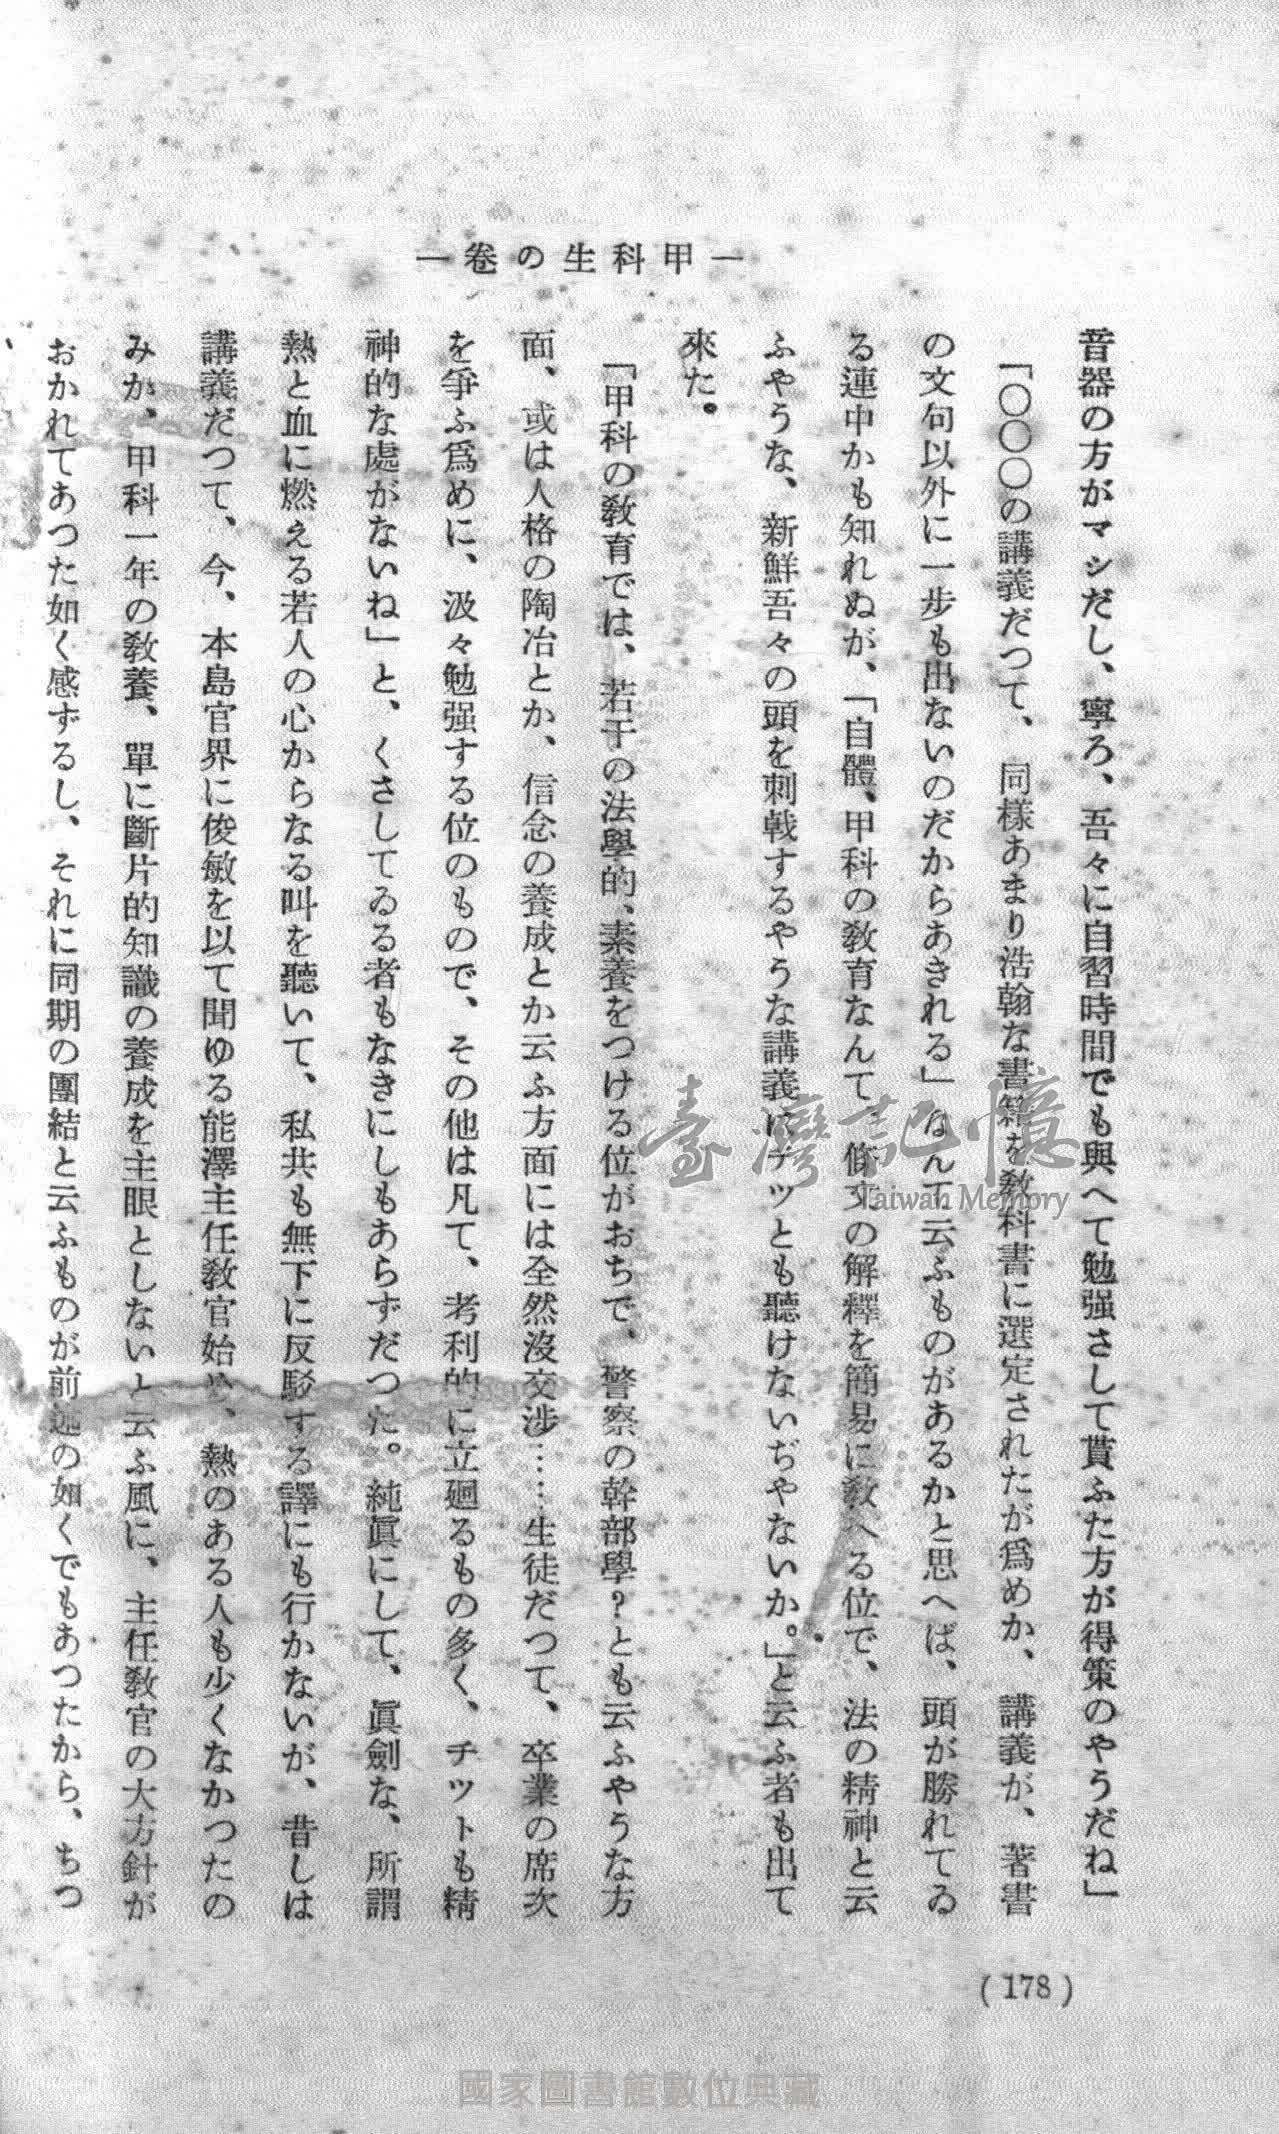 一甲科生の卷一
音器の方がマシだし、寧ろ、吾々に自習時間でも與へて勉强さして貰ふた方が得策のやうだね」
「〇〇〇の講義だつて、同樣あまり浩翰な書籍を敎科書に選定されたが爲めか、講義が、著書
の文句以外に一步も出ないのだからあきれる」なんて云ふものがあるかと思へば、頭が勝れてゐ
る連中かも知れぬが、「自體、甲科の敎育なんて、條文の解釋を簡易に敎へる位で、法の精神と云
ふやうな、新鮮吾々の頭を刺戟するやうな講義はチツとも聽けないぢやないか。」と云ふ者も出て
來た。
「甲科の敎育では、若干の法學的、素養をつける位がおちで、警察の幹部學?とも云ふやうな方
面、或は人格の陶冶とか、信念の養成とか云ふ方面には全然沒交涉……生徒だつて、卒業の席次
を爭ふ爲めに、汲々勉强する位のもので、その他は凡て、考利的に立廻るもの多く、チツトも精
神的な處がないね」と、くさしてゐる者もなきにしもあらずだつた。純眞にして、眞劍な、所謂
熱と血に燃える若人の心からなる叫を聽いて、私共も無下に反駁する譯にも行かないが、昔しは
講義だつて、今、本島官界に俊敏を以て聞ゆる能澤主任敎官始め、熱のある人も少くなかつたの
みか、甲科一年の敎養、單に斷片的知識の養成を主眼としないと云ふ風に、主任敎官の大方針が
おかれてあつた如く感ずるし、それに同期の團結と云ふものが前述の如くでもあつたから、ちつ
(178)
臺灣記憶
Taiwan Memory
國家圖書館數位典藏